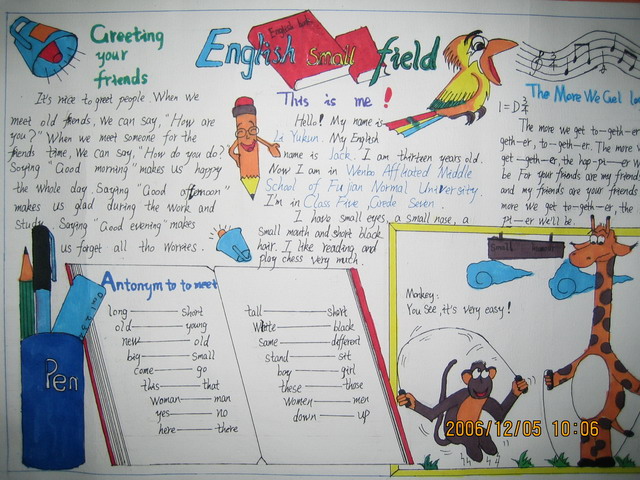 Greeting
your
friends
English small field
It's nice to greet people. When we
meet old friends, we can say, "How are
you?" When we meet someone for the
friends time, We can say, "How do you do?
Saying "Good morning" makes us happy
the whole day. Saying "Good afternoon"
makes us glad during the work and
study. Saying "Good evening" makes
us forget all the worries.
This is me!
Hello! My name is
Li Yukun. My English
name is Jack. I am thirteen years old.
Now I am in Wenbo Affliated Middle
School of Fujian Normal University.
I'm in Class Five, Grede Seven.
I have small eyes, a small nose, a
small mouth and short black
hair. I like reading and
play chess very much.
The More We Get
1=D
The more we get to—geth—er, to—
geth—er, to—geth—er. The more we
get—geth—er, the hap—pi—er we'll
be For your friends are my friends
and my friends are your friends
more we get to—geth—er, the
pi—er we'll be.
Antonym to to meet
long — short
old — young
new — old
big — small
come — go
this — that
woman — man
yes — no
here — there
tall — short
White — black
same — different
stand — sit
boy — girl
these — those
women — men
down — up
Pen
small
Monkey:
You see, it's very easy!
2006/12/05 10:06